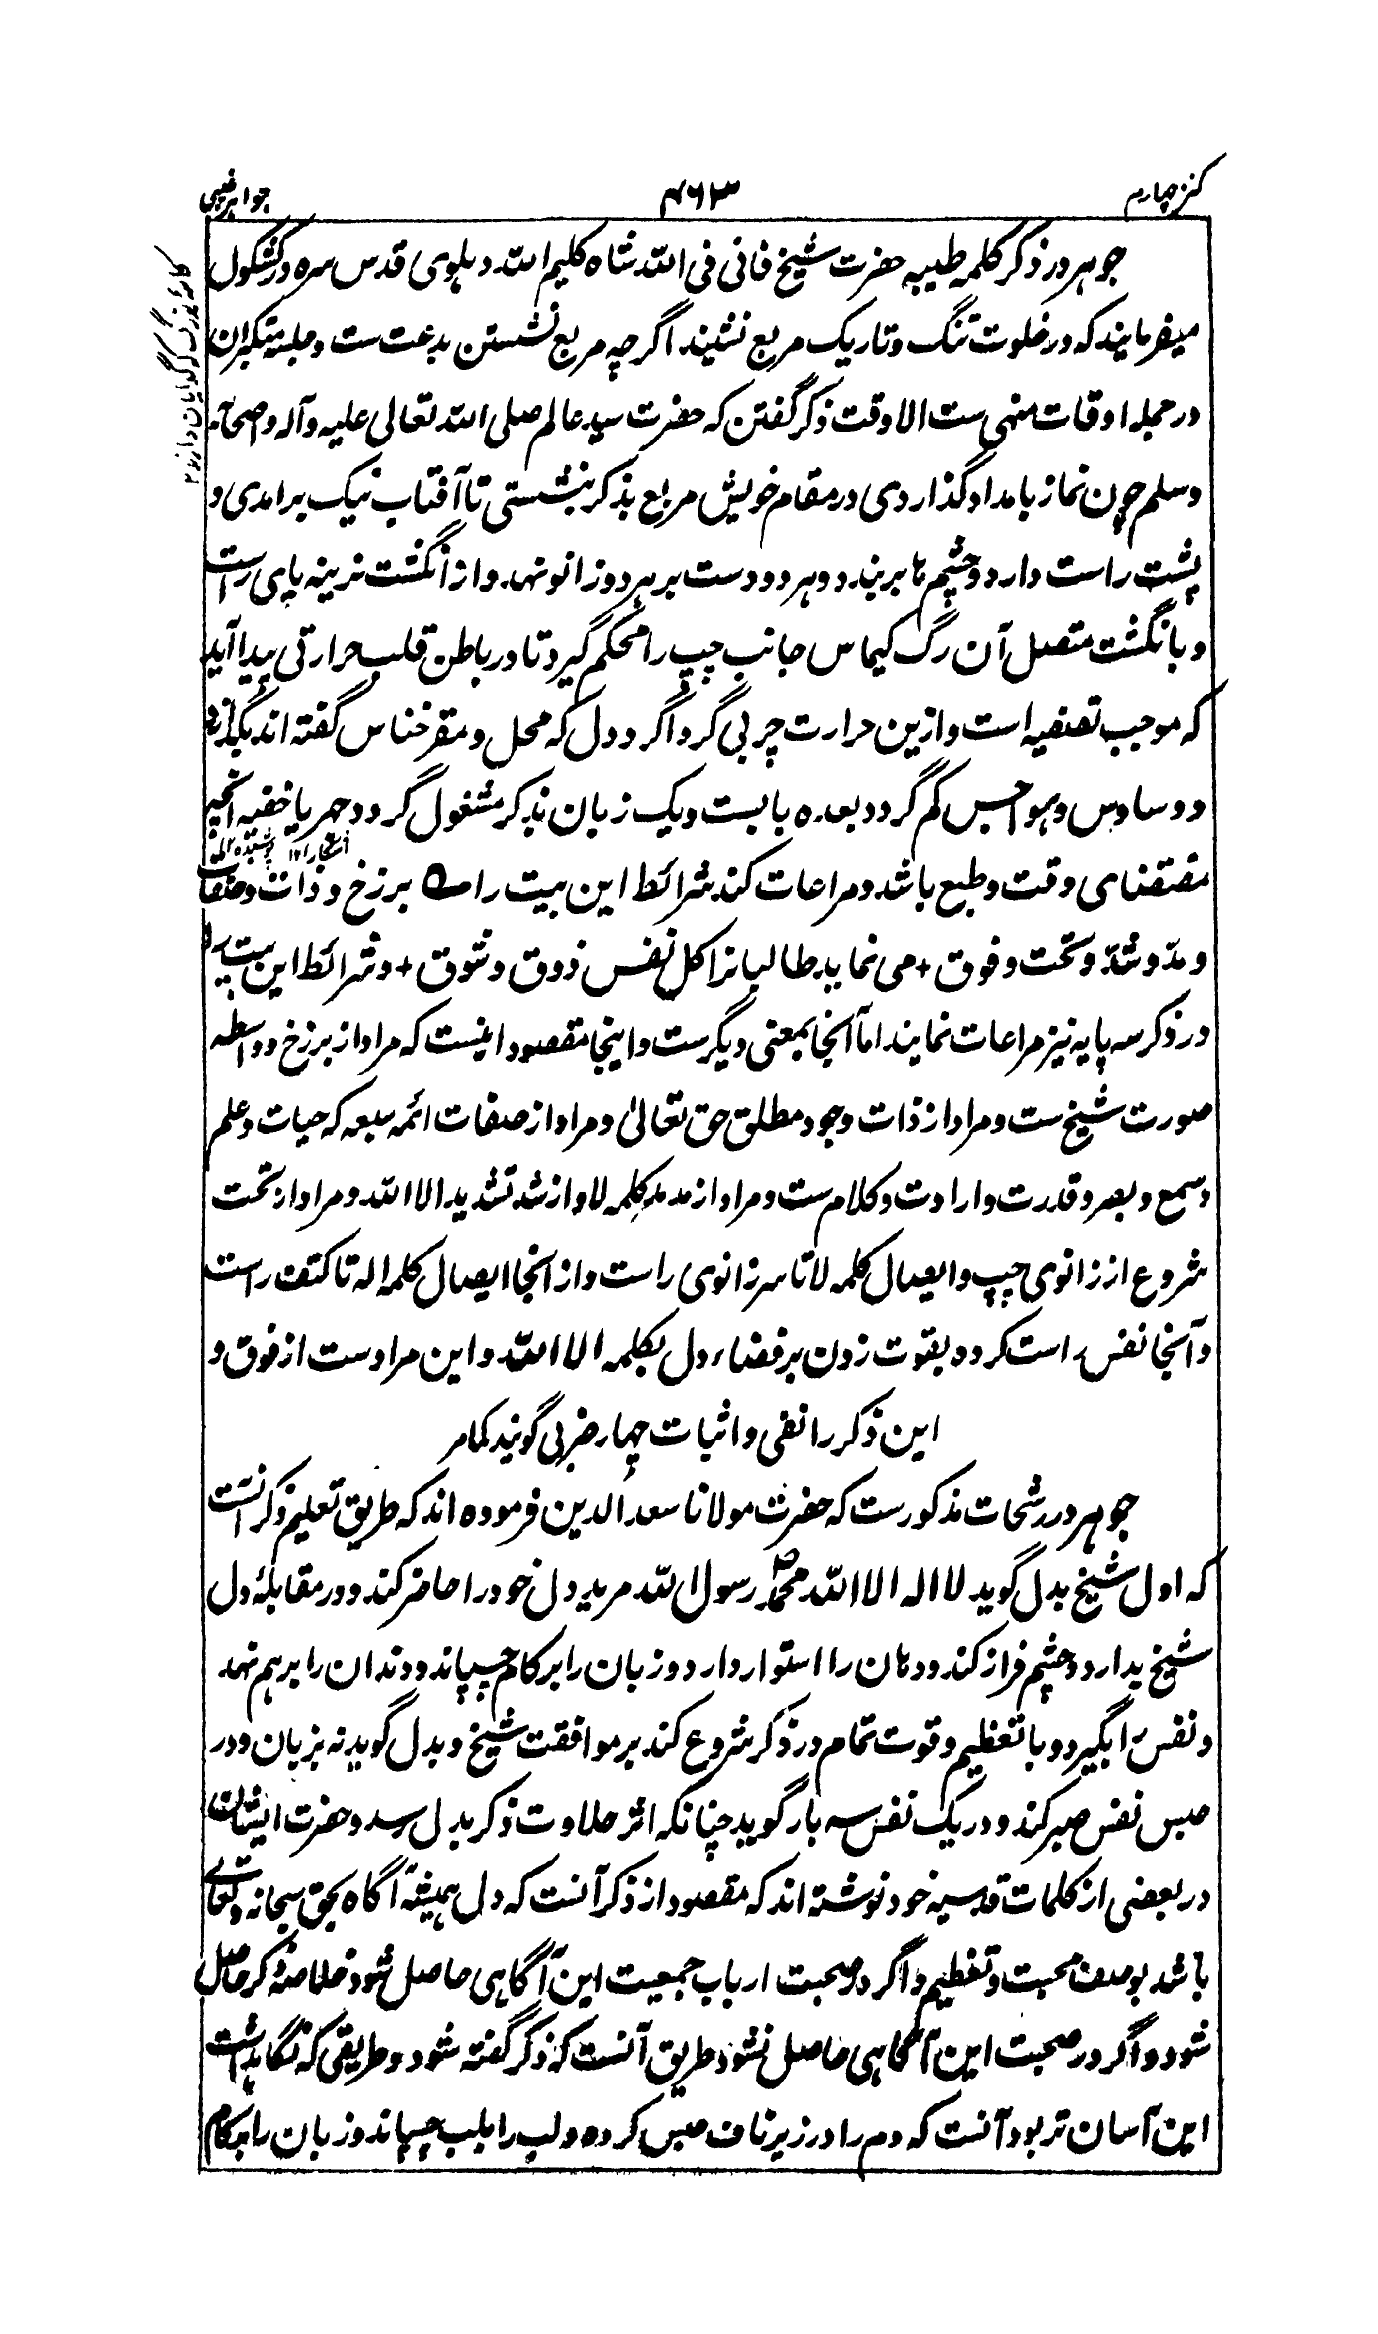 کنز چهارم
۴۶۳
جواہر غیبی
جوہر در ذکر کلمہ طیبہ حضرت شیخ فانی فی اللہ شاہ کلیم اللہ دہلوی قدس سرہ در کشکول
میفرمایند کہ در خلوت تنگ و تاریک مربع نشیند اگرچہ مربع نشستن بدعت ست و جلسہ متکبران
در جملہ اوقات منہی ست الا وقت ذکر گفتن کہ حضرت سید عالم صلی اللہ تعالی علیہ وآلہ وصحابہ
وسلم چون نماز بامداد گذاردی در مقام خویش مربع بذکر بنشستی تا آفتاب نیک برامدی و
پشت راست دارد و چشم ہا بربندد و ہر دو دست بر ہر دو زانو نہد و از انگشت نرینہ پای راست
و بانگشت متصل آن رگ کیماس جانب چپ را محکم گیرد تا در باطن قلب حرارتی پیدا آید
کہ موجب تصفیہ است و ازین حرارت چربی گرداگرد دل کہ محل و مقر خناس گفتہ اند بگدازد
و وساوس و ہواجس کم گردد بعدہ بابست و یک زبان بذکر مشغول گردد جہر یا خفیہ انچہ
آشکارا ۱۲ پوشیدہ ۱۲
مقتضای وقت و طبع باشد و مراعات کند شرائط این بیت را ؎ برزخ و ذات و صفات
و مدّ و شدّ و تحت و فوق + می نماید طالبانرا کل نفس ذوق و شوق + و شرائط این بیت را
در ذکر سہ پایہ نیز مراعات نمایند اما آنجا بمعنی دیگرست و اینجا مقصود اینست کہ مراد از برزخ و واسطہ
صورت شیخ ست و مراد از ذات وجود مطلق حق تعالیٰ و مراد از صفات ائمہ سبعہ کہ حیات و علم
وسمع و بصر و قدرت و ارادت و کلام ست و مراد از مد مد کلمہ لا و از شد تشدید الا اللہ و مراد از تحت
شروع از زانوی چپ و ایصال کلمہ لا تا سر زانوی راست و از انجا ایصال کلمہ الہ تا کتف راست
و آنجا نفس راست کردہ بقوت زدن بر فضاء دل بکلمہ الا اللہ و این مراد ست از فوق و
این ذکر را نفی و اثبات چہار ضربی گویند کمامر
جوہر در رشحات مذکورست کہ حضرت مولانا سعد الدین فرمودہ اند کہ طریق تعلیم ذکر انست
کہ اول شیخ بدل گوید لا الہ الا اللہ محمد رسول اللہ مرید دل خود را حاضر کند و در مقابلۂ دل
شیخ بدارد و چشم فراز کند و دہان را استوار دارد و زبان را بر کام چسپاند و دندان را برہم نہد
و نفس را بگیرد و با تعظیم و قوت تمام در ذکر شروع کند بر موافقت شیخ و بدل گوید نہ بزبان و در
حبس نفس صبر کند و در یک نفس سہ بار گوید چنانکہ اثر حلاوت ذکر بدل رسد و حضرت ایشان
در بعضی از کلمات قدسیہ خود نوشتہ اند کہ مقصود از ذکر آنست کہ دل ہمیشہ آگاہ بحق سبحانہ و تعالے
باشد بوصف محبت و تعظیم و اگر در صحبت ارباب جمعیت این آگاہی حاصل شود خلاصۂ ذکر حاصل
شود و اگر در صحبت این آگاہی حاصل نشود طریق آنست کہ ذکر گفتہ شود و طریقی کہ نگاہداشت
این آسان تر بود آنست کہ دم را در زیر ناف حبس کردہ و لب را بلب چسپاند و زبان را بکام